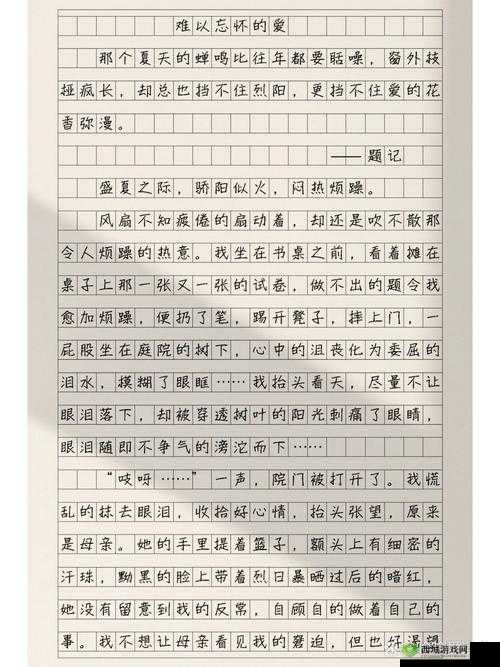 难以忘怀的爱
那个夏天的蝉鸣比往年都要聒噪，窗外枝
桠疯长，却总也挡不住烈阳，更挡不住爱的花
香弥漫。
——题记
盛夏之际，骄阳似火，闷热烦躁。
风扇不知疲倦的扇动着，却还是吹不散那
令人烦躁的热意。我坐在书桌之前，看着摊在
桌子上那一张又一张的试卷，做不出的题令我
愈加烦躁，便扔了笔，踢开凳子，摔上门，一
屁股坐在庭院的树下，心中的沮丧化为委屈的
泪水，模糊了眼眶……我抬头看天，尽量不让
眼泪落下，却被穿透树叶的阳光刺痛了眼睛，
眼泪随即不争气的滂沱而下……
“吱呀……”一声，院门被打开了。我慌
乱的抹去眼泪，收拾好心情，抬头张望，原来
是母亲。她的手里提着篮子，额头上有细密的
汗珠，黝黑的脸上带着烈日暴晒过后的暗红，
她没有留意到我的反常，自顾自的做着自己的
事。我不想让母亲看见我的窘迫，但也好渴望
西城游戏网